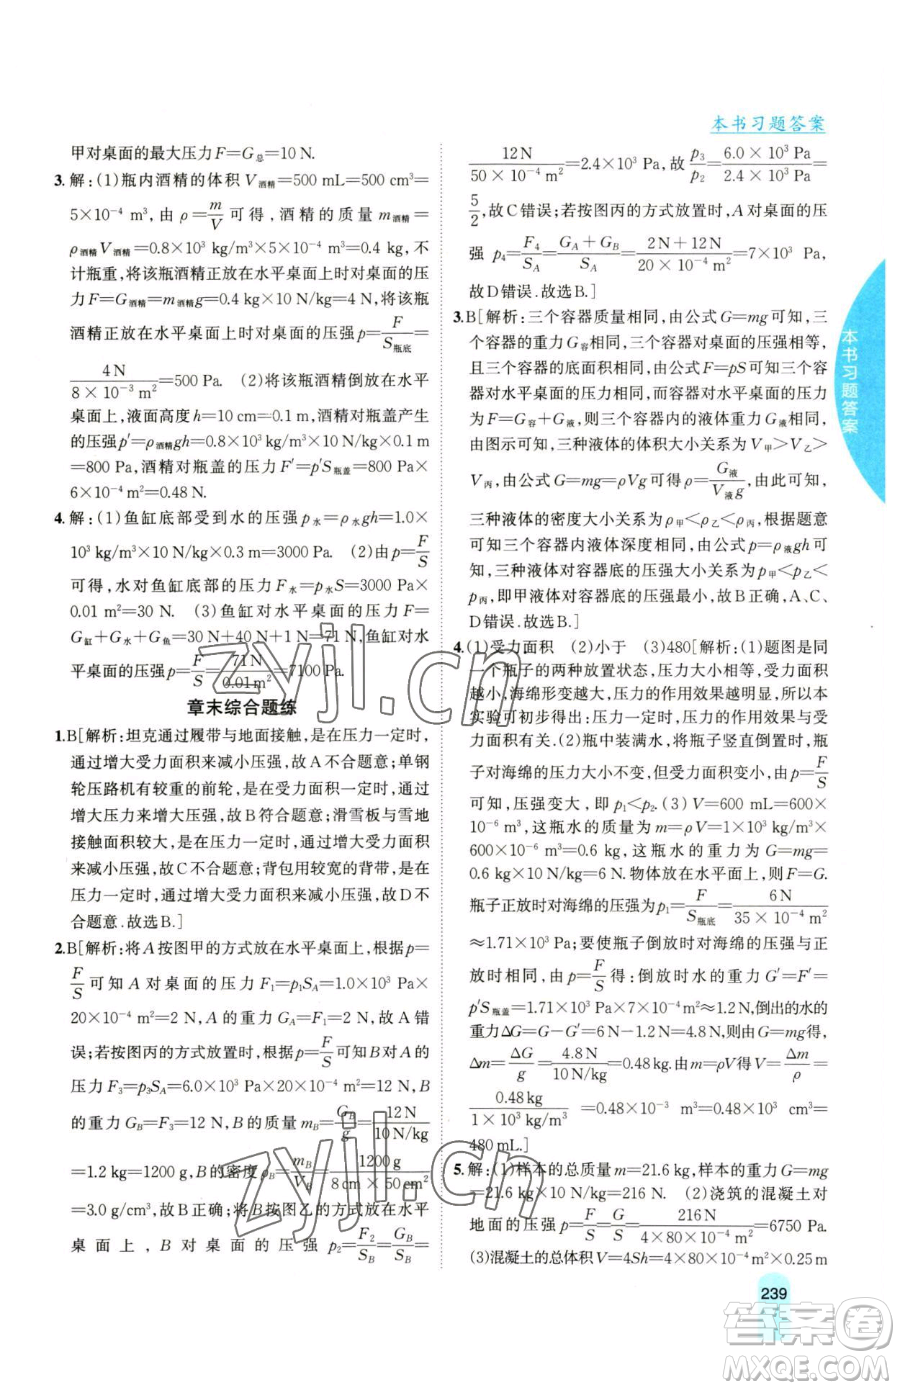 本书习题答案
甲对桌面的最大压力F=G总=10 N.
3. 解:(1)瓶内酒精的体积V酒精=500 mL=500 cm³=
5×10⁻⁴ m³,由ρ=m/V可得,酒精的质量m酒精=
ρ酒精V酒精=0.8×10³ kg/m³×5×10⁻⁴ m³=0.4 kg,不
计瓶重,将该瓶酒精正放在水平桌面上时对桌面的压
力F=G酒精=m酒精g=0.4 kg×10 N/kg=4 N,将该瓶
酒精正放在水平桌面上时对桌面的压强p=F/S瓶底=
4 N/(8×10⁻³ m²)=500 Pa. (2)将该瓶酒精倒放在水平
桌面上,液面高度h=10 cm=0.1 m,酒精对瓶盖产生
的压强p′=ρ酒精gh=0.8×10³ kg/m³×10 N/kg×0.1 m
=800 Pa,酒精对瓶盖的压力F′=p′S瓶盖=800 Pa×
6×10⁻⁴ m²=0.48 N.
4. 解:(1)鱼缸底部受到水的压强p水=ρ水gh=1.0×
10³ kg/m³×10 N/kg×0.3 m=3000 Pa. (2)由p=F/S
可得,水对鱼缸底部的压力F水=p水S=3000 Pa×
0.01 m²=30 N. (3)鱼缸对水平桌面的压力F=
G缸+G水+G鱼=30 N+40 N+1 N=71 N,鱼缸对水
平桌面的压强p=F/S=71 N/0.01 m²=7100 Pa.
章末综合题练
1. B[解析:坦克通过履带与地面接触,是在压力一定时,
通过增大受力面积来减小压强,故A不合题意;单钢
轮压路机有较重的前轮,是在受力面积一定时,通过
增大压力来增大压强,故B符合题意;滑雪板与雪地
接触面积较大,是在压力一定时,通过增大受力面积
来减小压强,故C不合题意;背包用较宽的背带,是在
压力一定时,通过增大受力面积来减小压强,故D不
合题意.故选B.]
2. B[解析:将A按图甲的方式放在水平桌面上,根据p=
F/S可知A对桌面的压力F₁=p₁S_A=1.0×10³ Pa×
20×10⁻⁴ m²=2 N,A的重力G_A=F₁=2 N,故A错
误;若按图丙的方式放置,由p=F/S可知B对A的
压力F₃=p₃S_A=6.0×10³ Pa×20×10⁻⁴ m²=12 N,B
的重力G_B=F₃=12 N,B的质量m_B=G_B/g=12 N/(10 N/kg)
=1.2 kg=1200 g,B的密度ρ_B=m_B/V_B=1200 g/(8 cm×50 cm²)
=3.0 g/cm³,故B正确;将B按图乙的方式放在水平
桌面上,B对桌面的压强p₂=F₂/S_B=G_B/S_B=
12 N/(50×10⁻⁴ m²)=2.4×10³ Pa,故p₃/p₂=6.0×10³ Pa/2.4×10³ Pa=
5/2,故C错误;若按图丙的方式放置,A对桌面的压
强p₄=F₄/S_A=(G_A+G_B)/S_A=(2 N+12 N)/(20×10⁻⁴ m²)=7×10³ Pa,
故D错误.故选B.]
3. B[解析:三个容器质量相同,由公式G=mg可知,三
个容器的重力G容相同,三个容器对桌面的压强相等,
三个容器的底面积相同,由公式F=pS可知三个容
器对水平桌面的压力相同,而容器对水平桌面的压力
为F=G容+G液,则三个容器内的液体重力相同,
由图示可知,三种液体的体积大小关系为V甲>V乙>
V丙,由公式G=mg=ρVg可得ρ=G液/V液g,由此可知,
三种液体的密度大小关系为ρ甲<ρ乙<ρ丙,根据题意
可知,三个容器内液体深度相同,由公式p=ρ液gh可
知,三种液体对容器底的压强大小关系为p甲<p乙<
p丙,即甲液体对容器底的压强最小,故B正确,A、C、
D错误.故选B.]
4. (1)受力面积 (2)小于 (3)480[解析:(1)题图是同
一个瓶子的两种放置状态,压力大小相等,受力面积
越小,海绵形变越大,压力的作用效果越明显,所以本
实验可初步得出:压力的作用效果与受力面积大小有
关.(2)瓶中装满水,将瓶子竖直倒置时,瓶
子对海绵的压力大小不变,但受力面积变小,由p=F/S
可知,压强变大,即p₁<p₂. (3)V=600 mL=600×
10⁻⁶ m³,这瓶水的质量为m=ρV=1×10³ kg/m³
×600×10⁻⁶ m³=0.6 kg,这瓶水的重力G=mg=
0.6 kg×10 N/kg=6 N. 物体放在水平面上,F=G.
瓶子正放时对海绵的压强为p₁=F/S瓶底=6 N/(35×10⁻⁴ m²)
≈1.71×10³ Pa;要使瓶子倒放时对海绵的压强与正
放时相同,由p=F/S得:倒放时水的重力G′=F′=
p′S瓶盖=1.71×10³ Pa×7×10⁻⁴ m²≈1.2 N,倒出的水的
重力ΔG=G−G′=6 N−1.2 N=4.8 N,则由G=mg得,
Δm=ΔG/g=4.8 N/(10 N/kg)=0.48 kg.由ρ=m/V得V=Δm/ρ=
0.48 kg/(1×10³ kg/m³)=0.48×10⁻³ m³=0.48×10³ cm³=
480 mL.]
5. 解:(1)样本的总质量m=21.6 kg,样本的重力G=mg
=21.6 kg×10 N/kg=216 N. (2)浇筑的混凝土对
地面的压强p=F/S=G/S=216 N/(4×80×10⁻⁴ m²)=6750 Pa.
(3)混凝土的总体积V=4Sh=4×80×10⁻⁴ m²×0.25 m
本书习题答案
239
zyjl.cn
zyjl.cn
答案圈
MXQE.COM